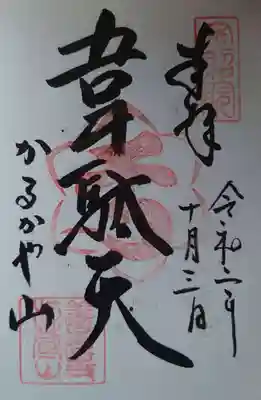 奉拝
令和二年
十月三日
韋駄天
かるかや山